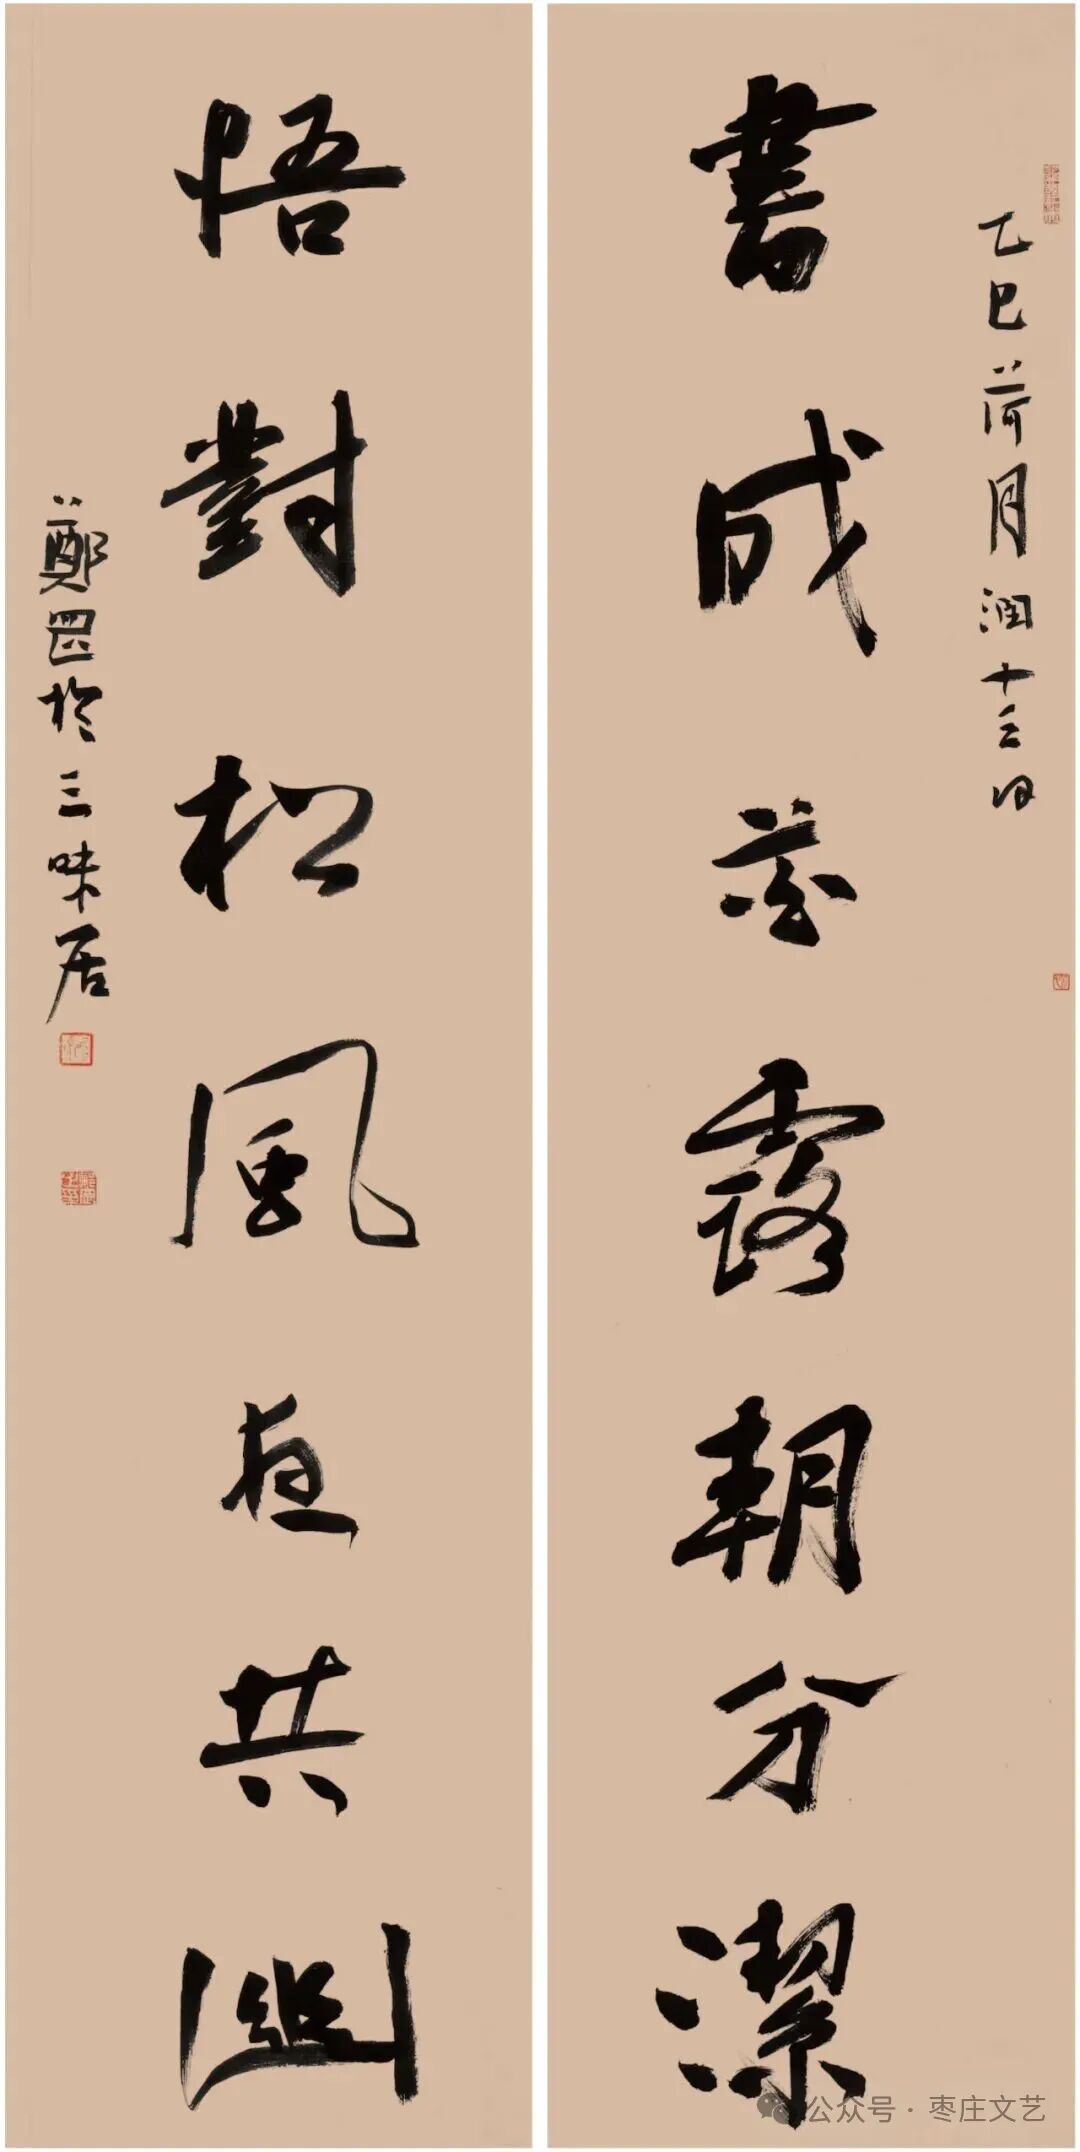 乙巳荷月潤十三日
書成花露朝分潔
悟對松風夜共幽
鄭罡於三味居
公众号·枣庄文艺